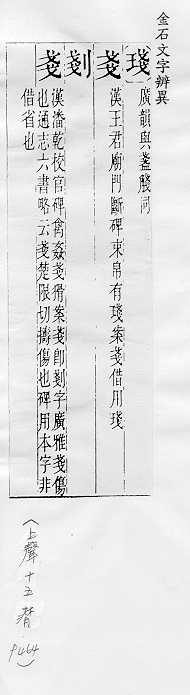 金石文字辨異
琖 廣韻與盞醆同
戔 漢王君廟門斷碑束帛有琖案戔借用琖
剗
戔 漢潘乾校官碑禽姦戔猾案戔卽剗字廣雅戔傷
也通志六書略云戔楚限切擣傷也碑用本字非
借省也
(上聲十五潸 P464)